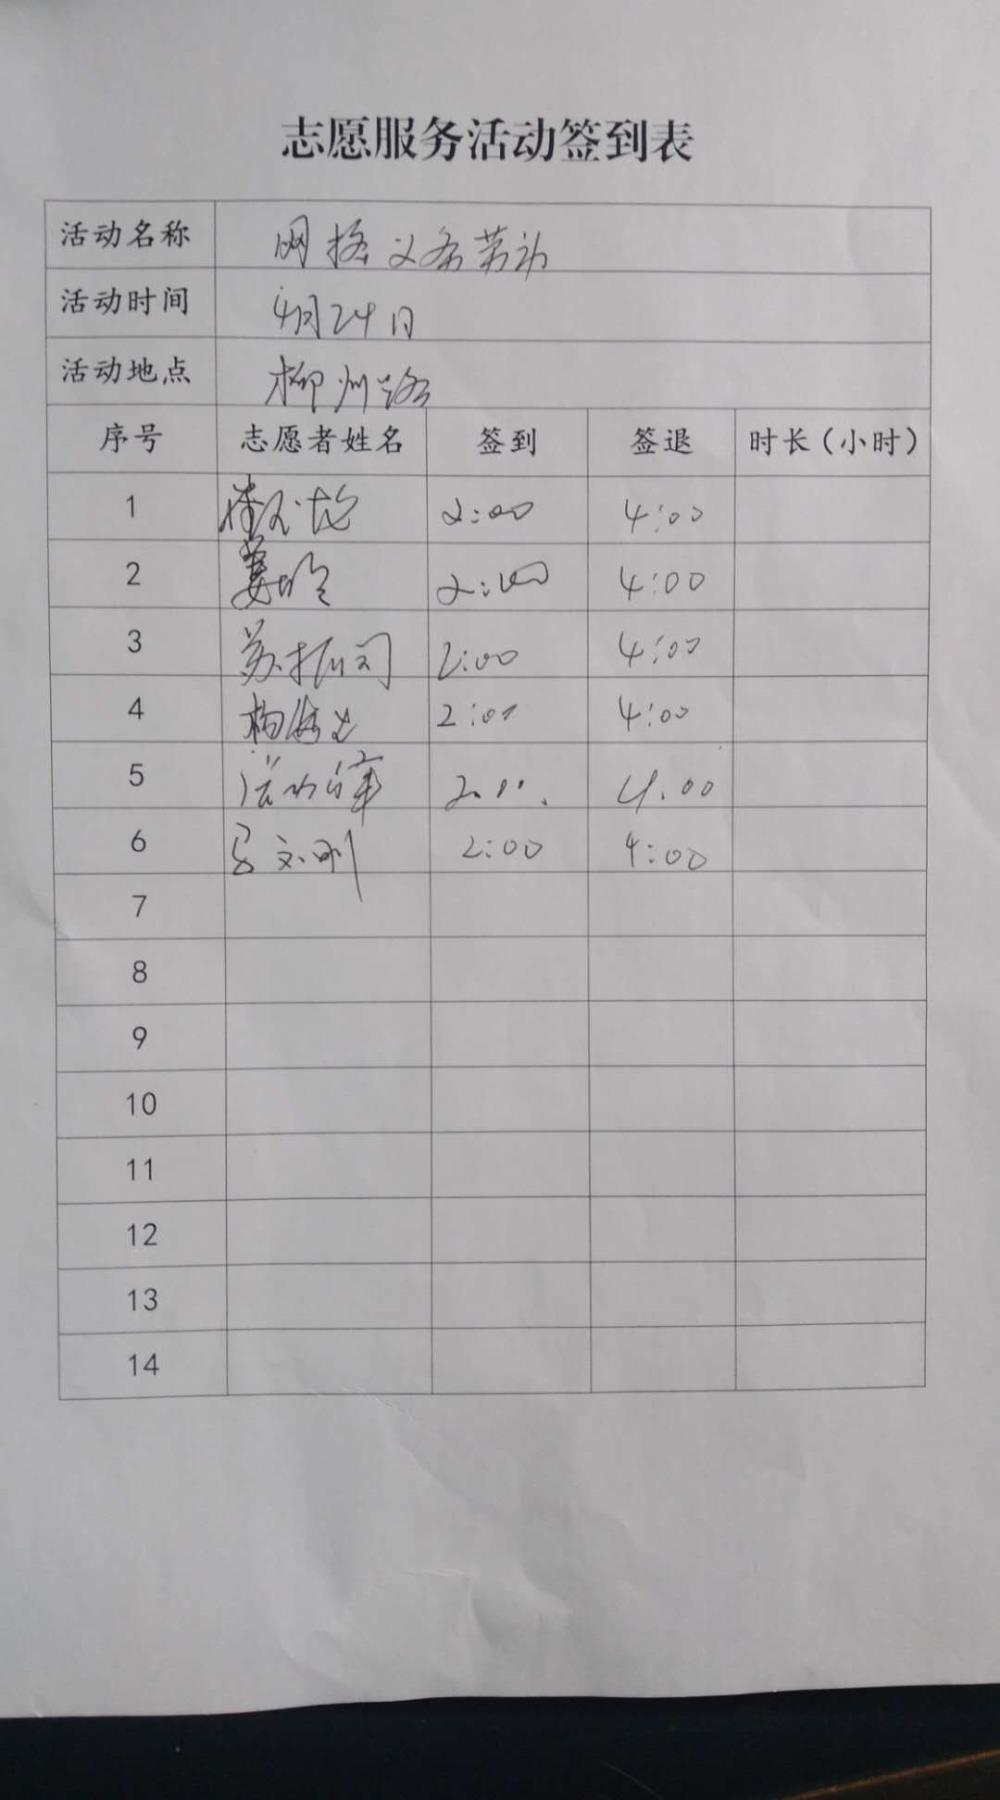 志愿服务活动签到表
活动名称 网格义务劳动
活动时间 4月24日
活动地点 柳州路
序号 志愿者姓名 签到 签退 时长(小时)
1 2:00 4:00
2 姜玲 2:00 4:00
3 苏振司 2:00 4:00
4 2:00 4:00
5 4.00
6 吴文刚 2:00 4:00
7
8
9
10
11
12
13
14